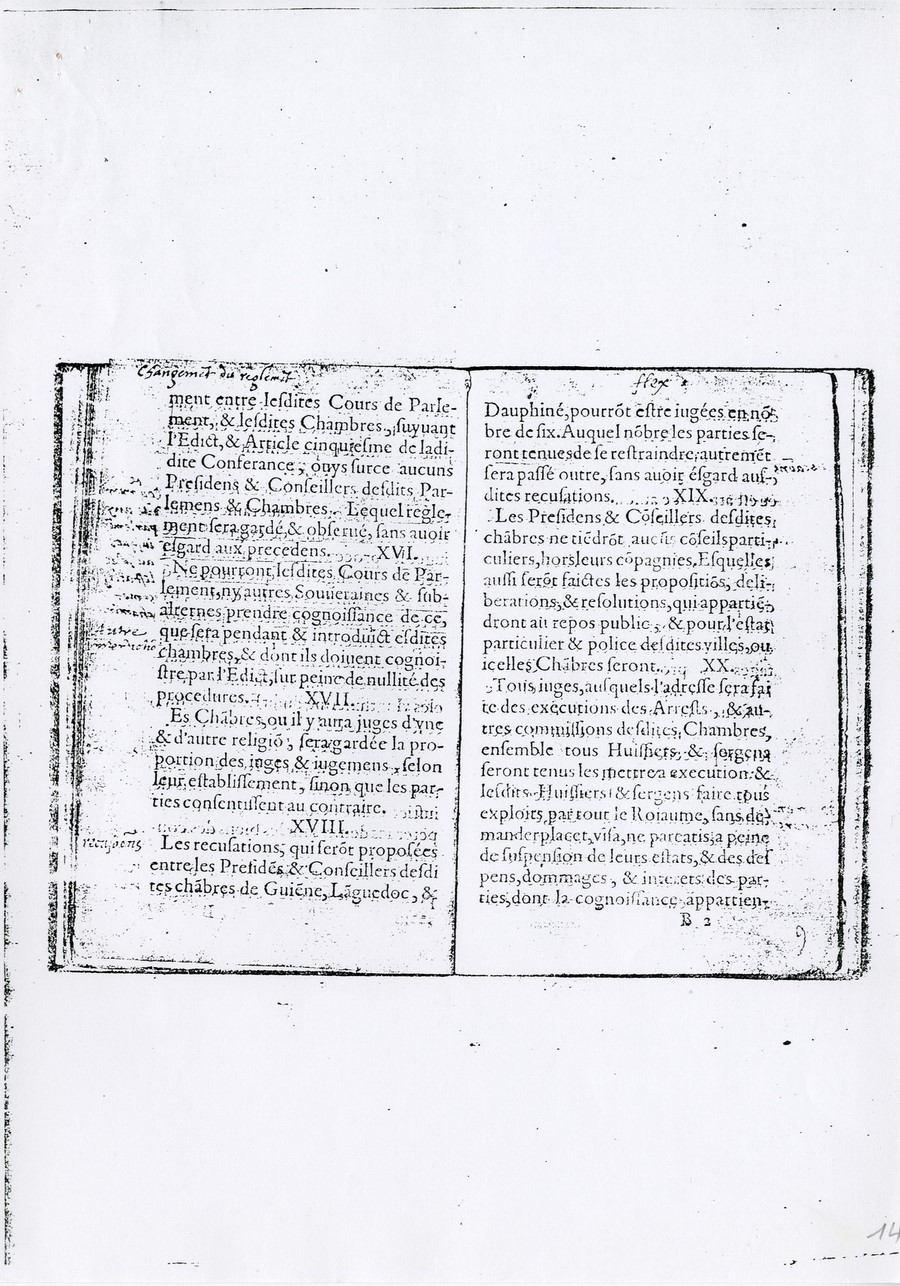 Changemēt du reglemēt
ment entre leſdites Cours de Parle-
ment, & leſdites Chambres, ſuyuant
l'Edict, & Article cinquieſme de ladi-
dite Conferance, ouys ſurce aucuns
Preſidens & Conſeillers deſdits Par-
lemens & Chambres. Lequel regle-
ment ſera gardé, & obſerué, ſans auoir
eſgard aux precedens. XVI.
Ne pourront leſdites Cours de Par-
lement, ny autres Souueraines & ſub-
alternes prendre cognoiſſance de ce,
que ſera pendant & introduict eſdites
chambres, & dont ils doiuent cognoi-
ſtre par l'Edict, ſur peine de nullité des
procedures. XVII.
Es Chābres, ou il y aura juges d'vne
& d'autre religiō, ſera gardée la pro-
portion des juges & iugemens, ſelon
leur eſtabliſſement, ſinon que les par-
ties conſentiſſent au contraire.
XVIII.
recuſations
Les recuſations, qui ſerōt propoſées
entre les Preſidēs & Conſeillers deſdi
tes chābres de Guiēne, Lāguedoc, &
Dauphiné, pourrōt eſtre iugées en nō-
bre de ſix. Auquel nōbre les parties ſe-
ront tenues de ſe reſtraindre, autremēt
ſera paſſé outre, ſans auoir éſgard auſ-
dites recuſations. XIX.
Les Preſidens & Cōſeillers deſdites
chābres ne tiēdrōt aucūs cōſeils parti-
culiers, hors leurs cōpagnies. Eſquelles
auſſi ſerōt faictes les propoſitiōs, deli-
berations, & reſolutions, qui appartiē-
dront au repos public, & pour l'eſtat
particulier & police deſdites villes, ou
icelles Chābres ſeront. XX.
Tous iuges, auſquels l'adreſſe ſera fai
te des exécutions des Arreſts, & au-
tres commiſſions deſdites Chambres,
enſemble tous Huiſſiers & ſergens
ſeront tenus les mettre a execution: &
leſdits Huiſſiers & ſergens faire tous
exploits par tout le Roiaume, ſans de-
mander placet, viſa, ne pareatis, a peine
de ſuſpenſion de leurs eſtats, & des deſ
pens, dommages, & intereſts des par-
ties, dont la cognoiſſance appartien-
B 2
9
14